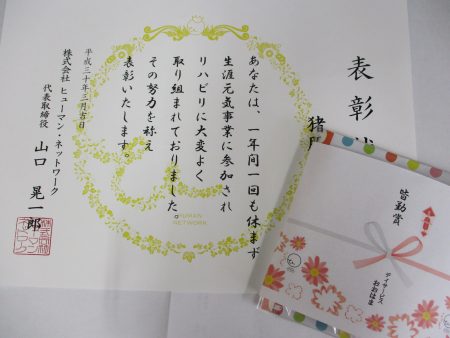 表彰状
猪
あなたは、一年間一回も休まず
生涯元気事業に参加され
リハビリに大変よく
取り組まれておりました。
その努力を称え
表彰いたします。
平成三十年三月吉日
株式会社 ヒューマン・ネットワーク
代表取締役 山口 晃一郎
HUMAN
NETWORK
皆勤賞
デイサービス
おおはま